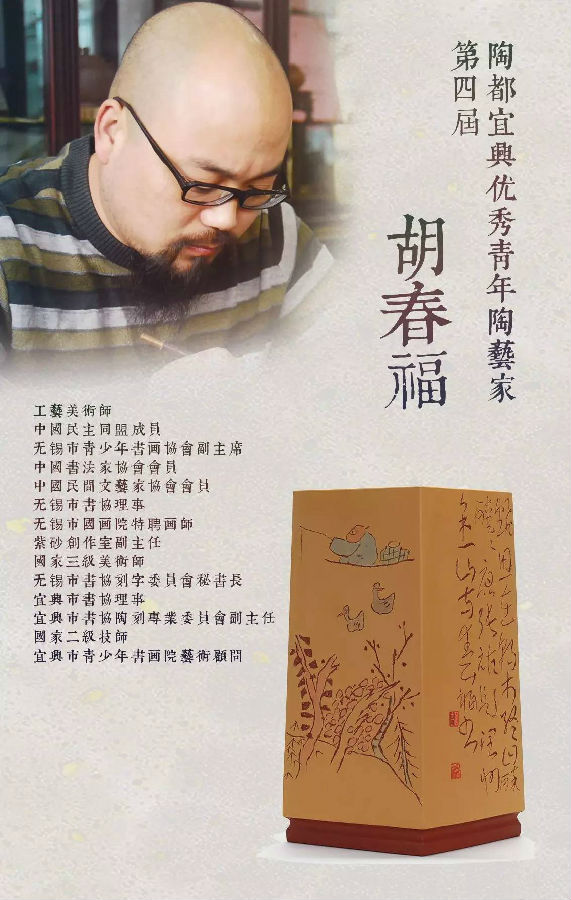 陶都宜興优秀青年陶藝家
第四屆
胡春福
工藝美術師
中國民主同盟成員
无锡市青少年书画協會副主席
中國书法家協會會員
中國民間文藝家協會會員
无锡市书協理事
无锡市國画院特聘画師
紫砂創作室副主任
國家三級美術師
无锡市书協刻字委員會秘书長
宜興市书協理事
宜興市书協陶刻專業委員會副主任
國家二級技師
宜興市青少年书画院藝術顧問